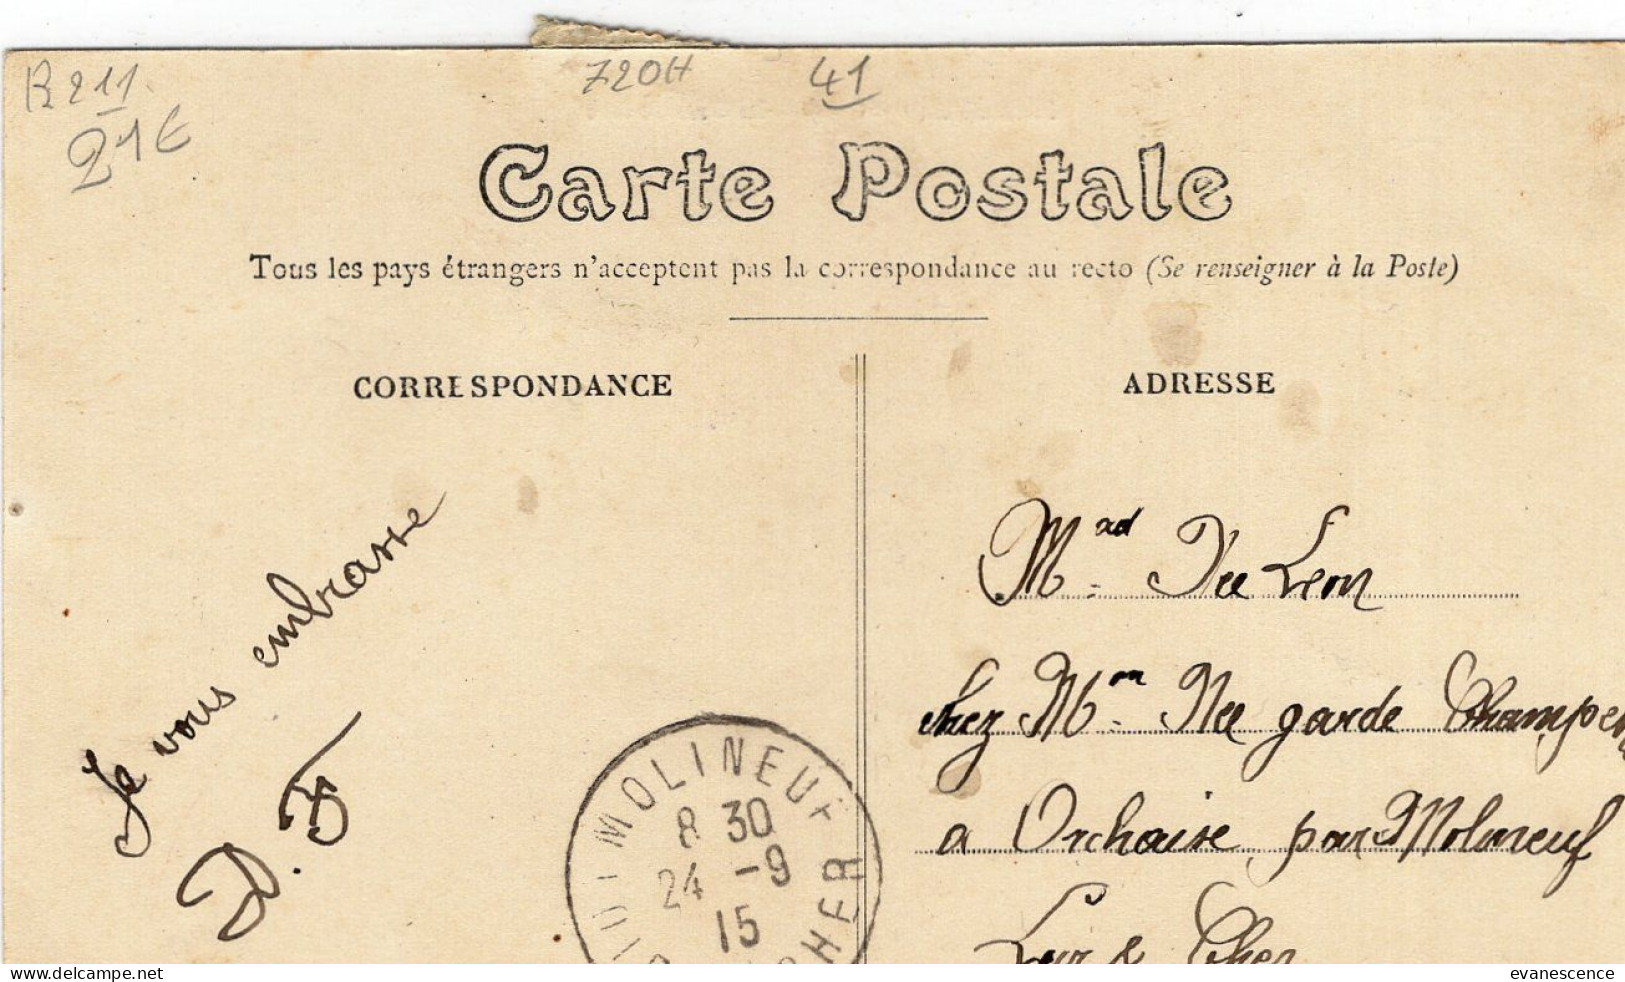 R 211
21€
720H
41
Carte Postale
Tous les pays étrangers n'acceptent pas la correspondance au recto (Se renseigner à la Poste)
CORRESPONDANCE
ADRESSE
Je vous embrasse
D. F
MOLINEUF
8 30
24 -9
15
CHER
Léon
chez Mon garde
a Orchaise par Molineuf
Loir & Cher
https://www.delcampe.net
evanescence